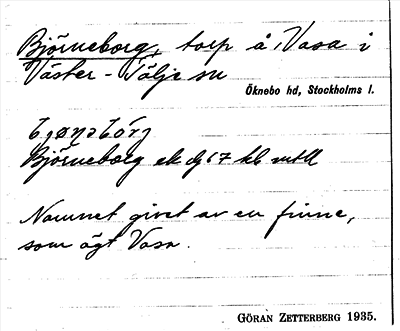 Björneborg, torp å Vasa i
Väster-Tälje sn
Öknebo hd, Stockholms l.
Björneborg
Namnet givet av en finne,
som ägt Vasa.
GÖRAN ZETTERBERG 1935.